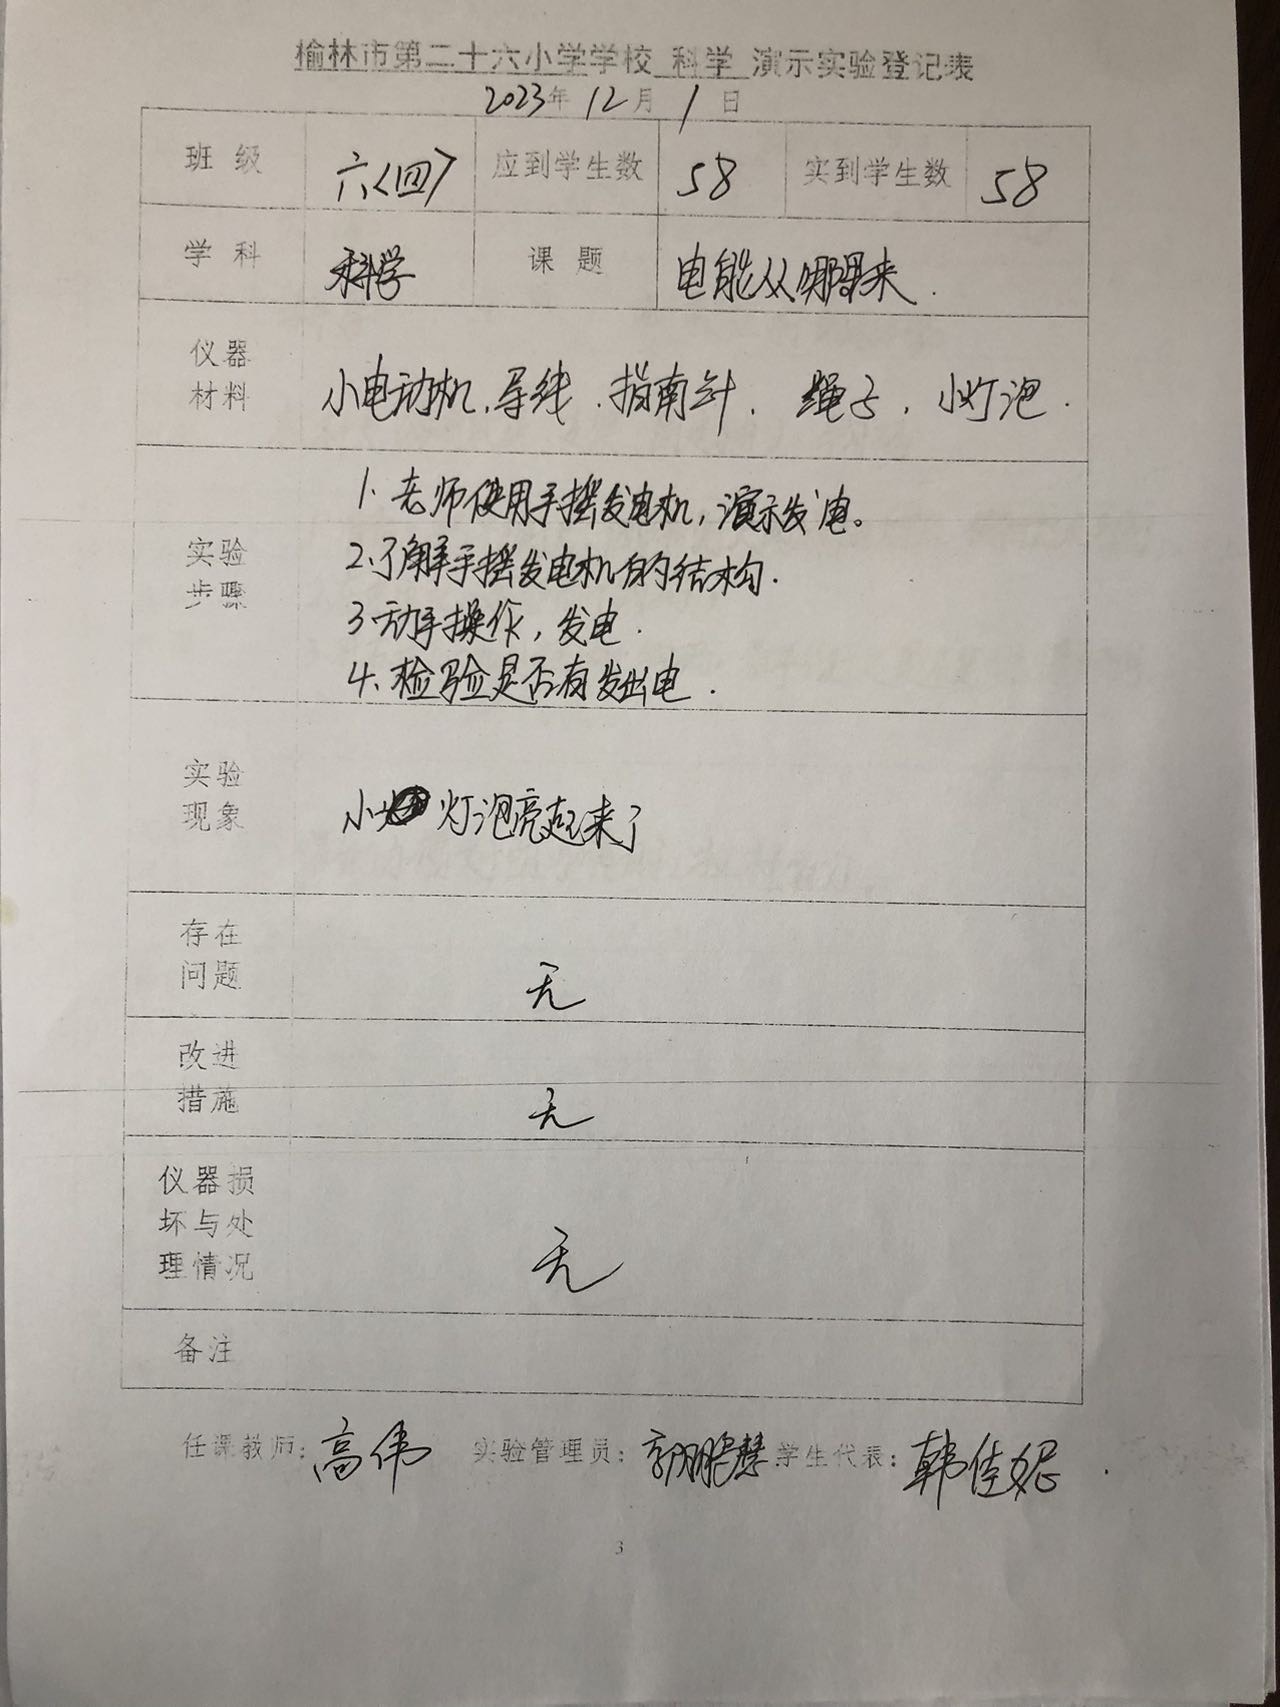 榆林市第二十六小学学校 科学 演示实验登记表
2023年 12月 1日
班级 六〈四〉 应到学生数 58 实到学生数 58
学科 科学 课题 电能从哪里来.
仪器
材料
小电动机、导线、指南针、绳子、小灯泡.
实验
步骤
1.老师使用手摇发电机,演示发电。
2.了解手摇发电机的结构.
3.动手操作,发电.
4、检验是否有发出电.
实验
现象
小灯泡亮起来了
存在
问题
无
改进
措施
无
仪器损
坏与处
理情况
无
备注
任课教师:高伟 实验管理员: 学生代表:韩佳妮
3